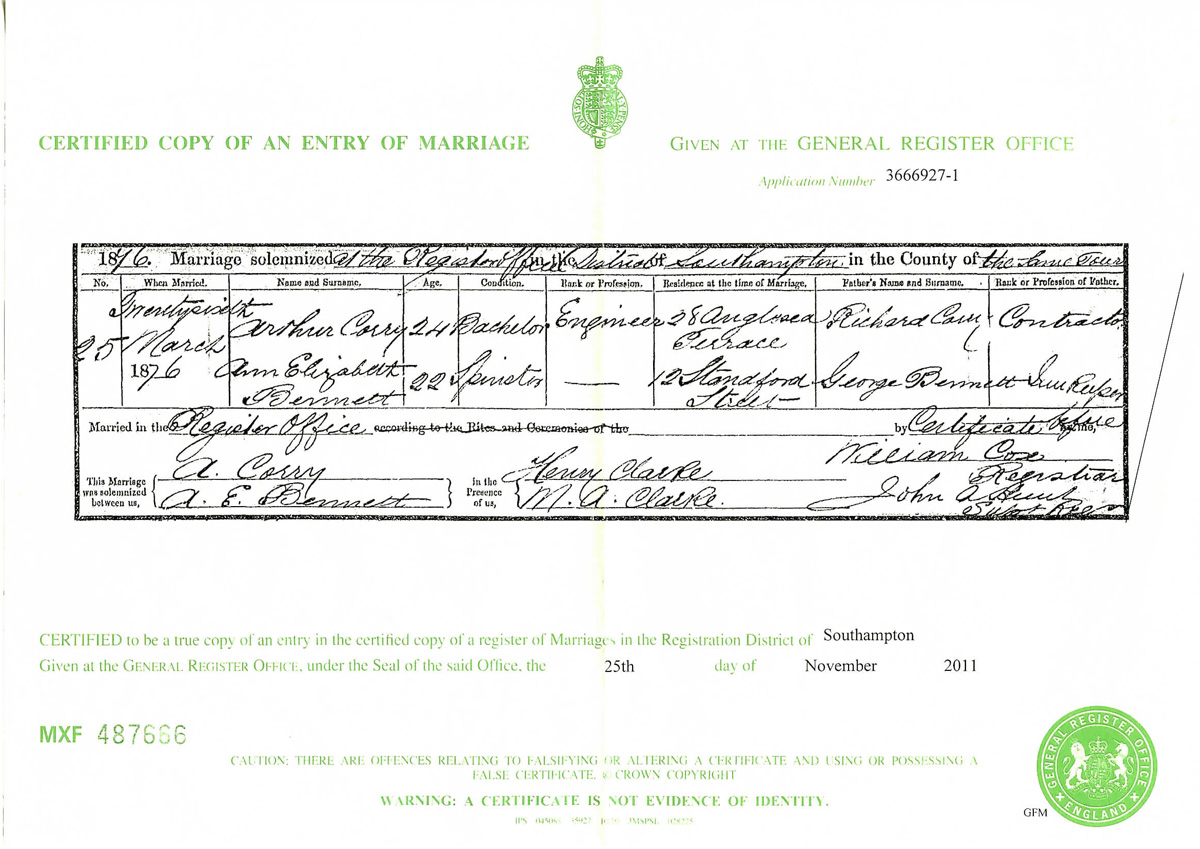 CERTIFIED COPY OF AN ENTRY OF MARRIAGE
GIVEN AT THE GENERAL REGISTER OFFICE
Application Number 3666927-1
1876. Marriage solemnized at the Register Office in the District of Southampton in the County of the same Town
No. When Married. Name and Surname. Age. Condition. Rank or Profession. Residence at the time of Marriage. Father's Name and Surname. Rank or Profession of Father.
25 Twentysixth March 1876
Arthur Corry 24 Bachelor Engineer 28 Anglesea Terrace Richard Corry Contractor
Ann Elizabeth Bennett 22 Spinster — 12 Standford Street George Bennett Inn Keeper
Married in the Register Office according to the Rites and Ceremonies of the by Certificate before me,
This Marriage was solemnized between us,
A. Corry
A. E. Bennett
In the Presence of us,
Henry Clarke
M. A. Clarke.
William Cox
Registrar
John A
CERTIFIED to be a true copy of an entry in the certified copy of a register of Marriages in the Registration District of Southampton
Given at the GENERAL REGISTER OFFICE, under the Seal of the said Office, the 25th day of November 2011
MXF 487666
CAUTION: THERE ARE OFFENCES RELATING TO FALSIFYING OR ALTERING A CERTIFICATE AND USING OR POSSESSING A
FALSE CERTIFICATE. © CROWN COPYRIGHT
WARNING: A CERTIFICATE IS NOT EVIDENCE OF IDENTITY.
GENERAL REGISTER OFFICE
ENGLAND
GFM